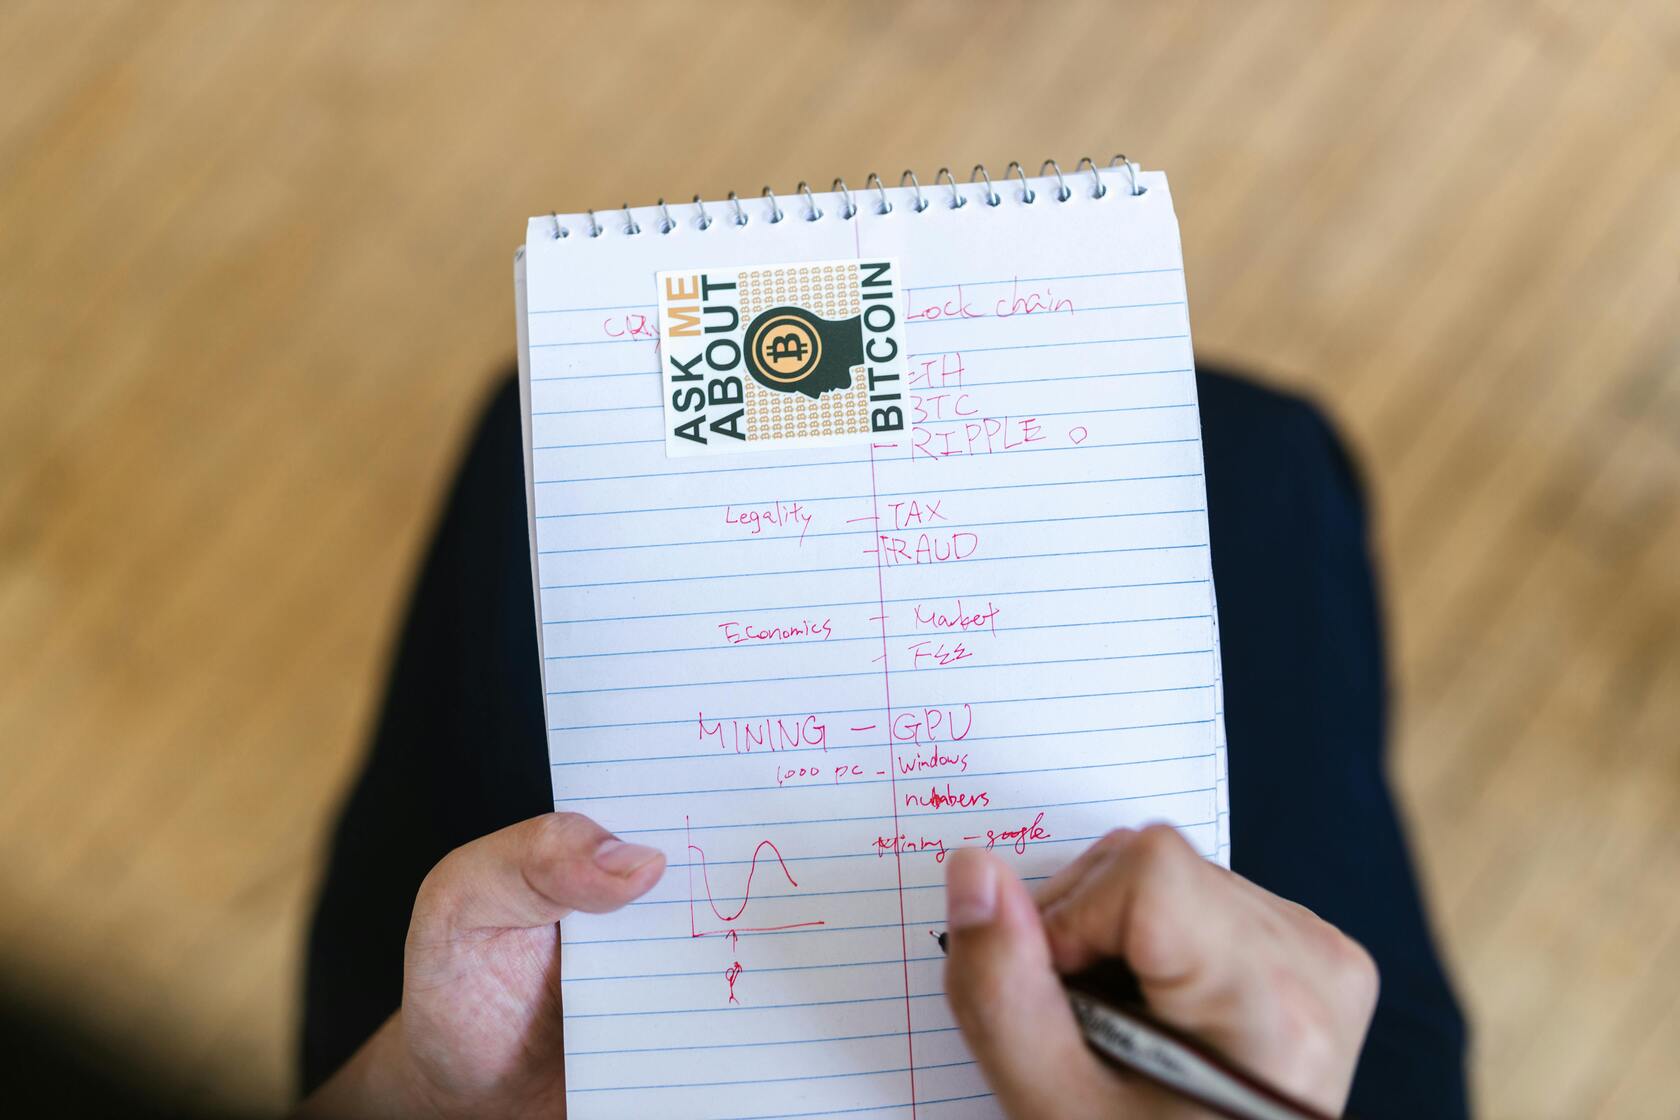 ASK ME
ABOUT
BITCOIN
Lock chain
ETH
BTC
RIPPLE
Legality — TAX
— FRAUD
Economics — Market
— FEE
MINING — GPU
1,000 pc - Windows
numbers
Mining — google